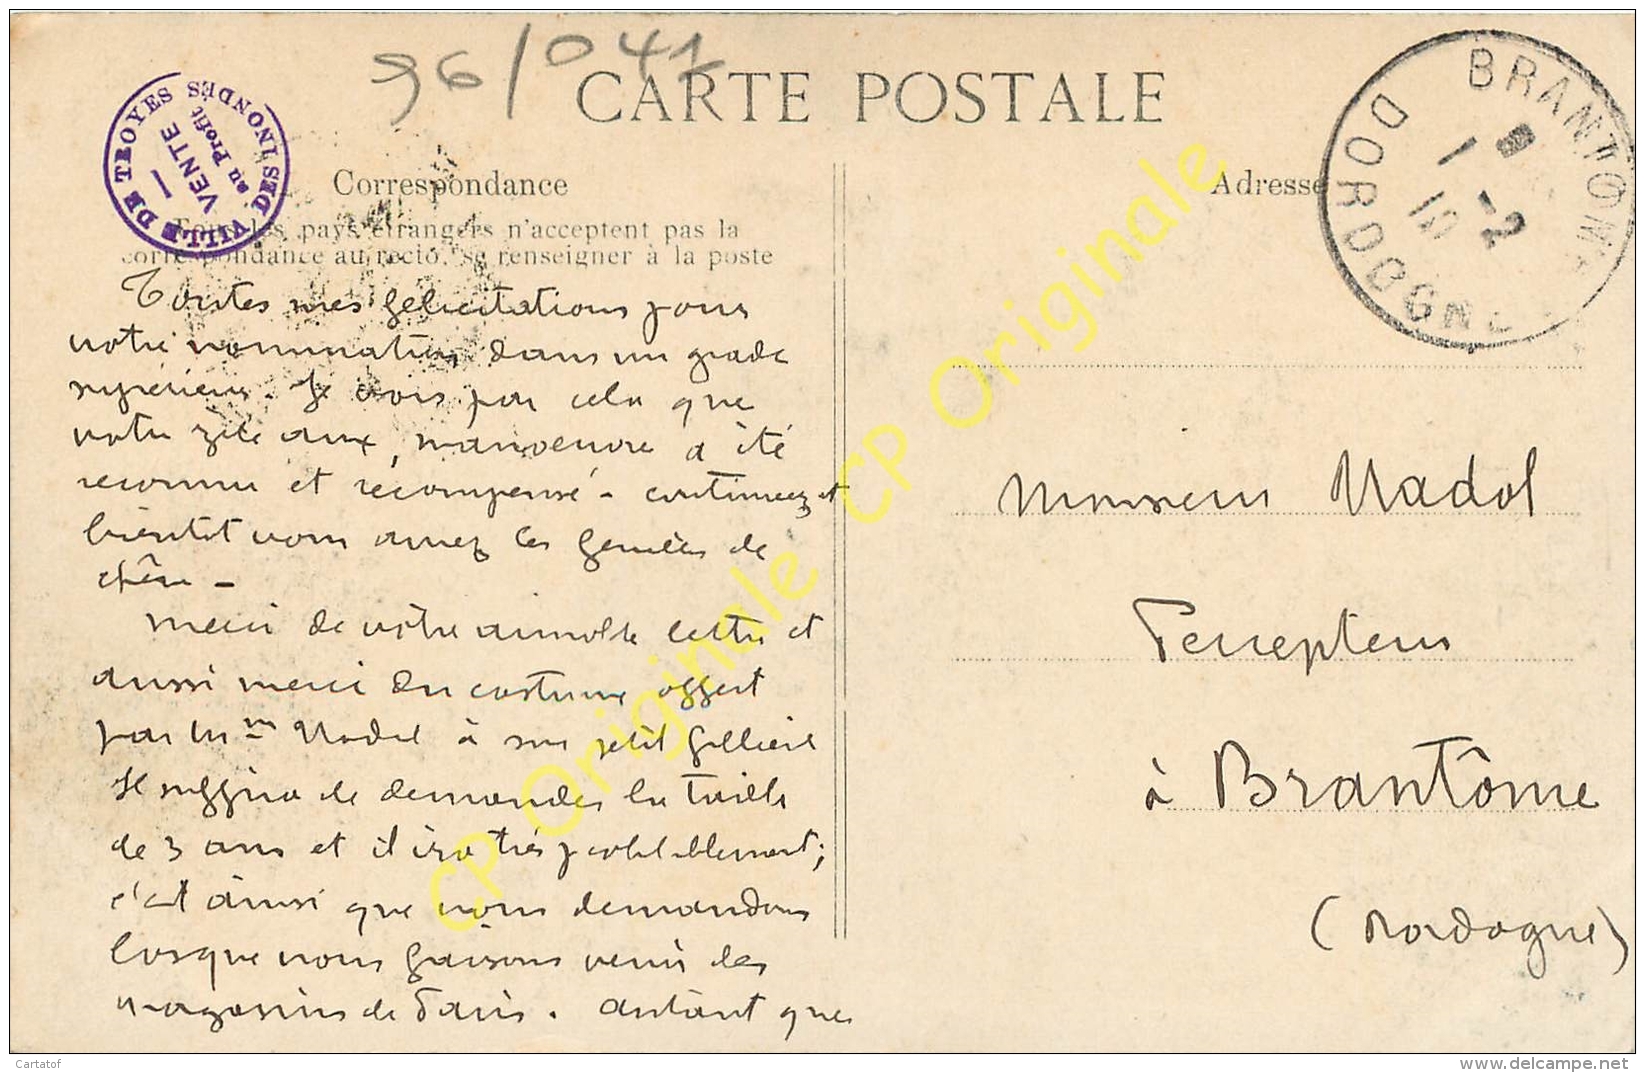 96/041
CARTE POSTALE
VILLE DE TROYES
VENTE
au Profit
DES INONDÉS
BRANTOME
8
1 -2
10
DORDOGNE
Correspondance
Adresse
Tous les pays étrangers n'acceptent pas la
correspondance au recto, se renseigner à la poste
Toutes mes félicitations pour
votre nomination dans un grade
supérieur. Je vois par cela que
votre zèle aux manoeuvre a été
reconnu et récompensé - continuez et
bientôt vous aurez les feuilles de
chêne -
Merci de votre aimable lettre et
aussi merci du costume offert
par Mme Nadol à son petit
Il suffira de demander la taille
de 3 ans et il ira très probablement;
c'est ainsi que nous demandons
lorsque nous faisons venir des
magasins de Paris. autant que
Monsieur Nadol
Percepteur
à Brantôme
(Dordogne)
CP Originale
CP Originale
Cartatof
www.delcampe.net